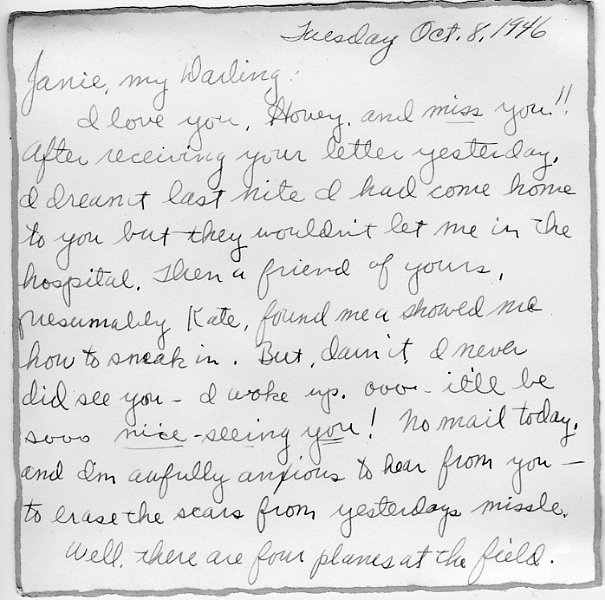 Tuesday Oct. 8, 1946
Janie, my Darling:
I love you, Honey, and miss you!!
After receiving your letter yesterday,
I dreamt last nite I had come home
to you but they wouldn't let me in the
hospital. Then a friend of yours,
presumably Kate, found me & showed me
how to sneak in. But, damit, I never
did see you - I woke up. ooo - it'll be
sooo nice - seeing you! No mail today,
and I'm awfully anxious to hear from you -
to erase the scars from yesterdays missle.
Well, there are four planes at the field.